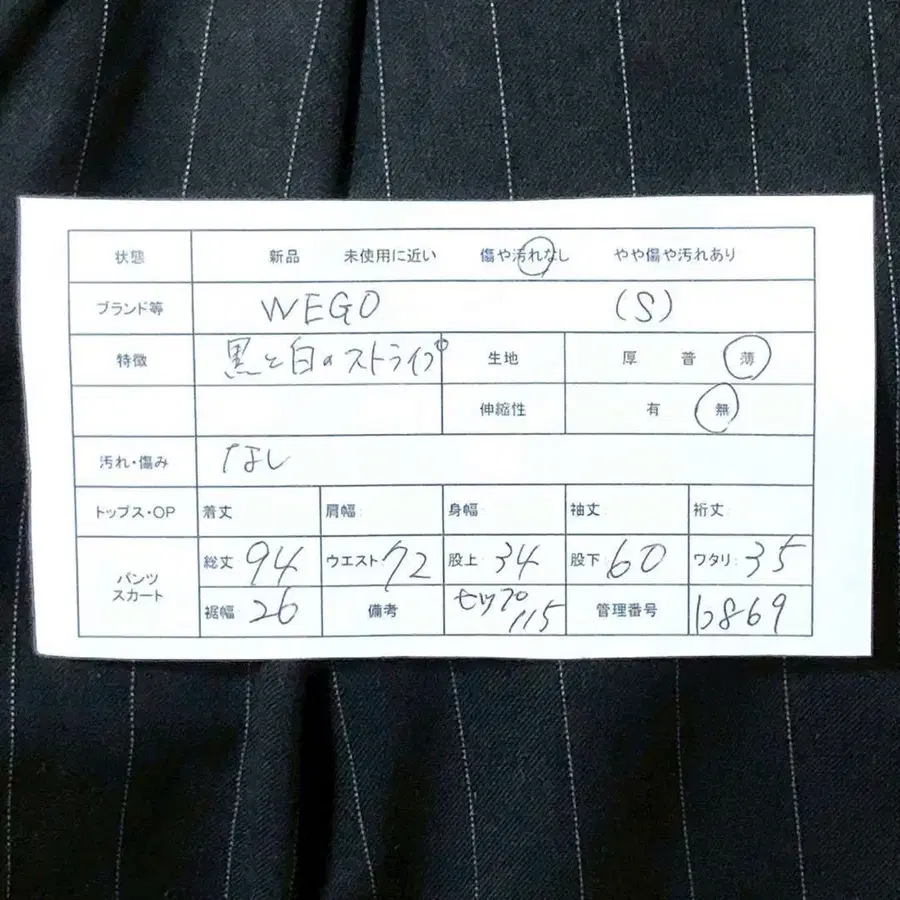 状態 新品 未使用に近い 傷や汚れなし やや傷や汚れあり
ブランド等 WEGO (S)
特徴 黒と白のストライプ 生地 厚 普 薄
伸縮性 有 無
汚れ・傷み なし
トップス・OP 着丈 肩幅: 身幅: 袖丈: 裄丈:
パンツ スカート 総丈 94 ウエスト 72 股上: 34 股下 60 ワタリ: 35
裾幅: 26 備考 ヒップ 115 管理番号 b869